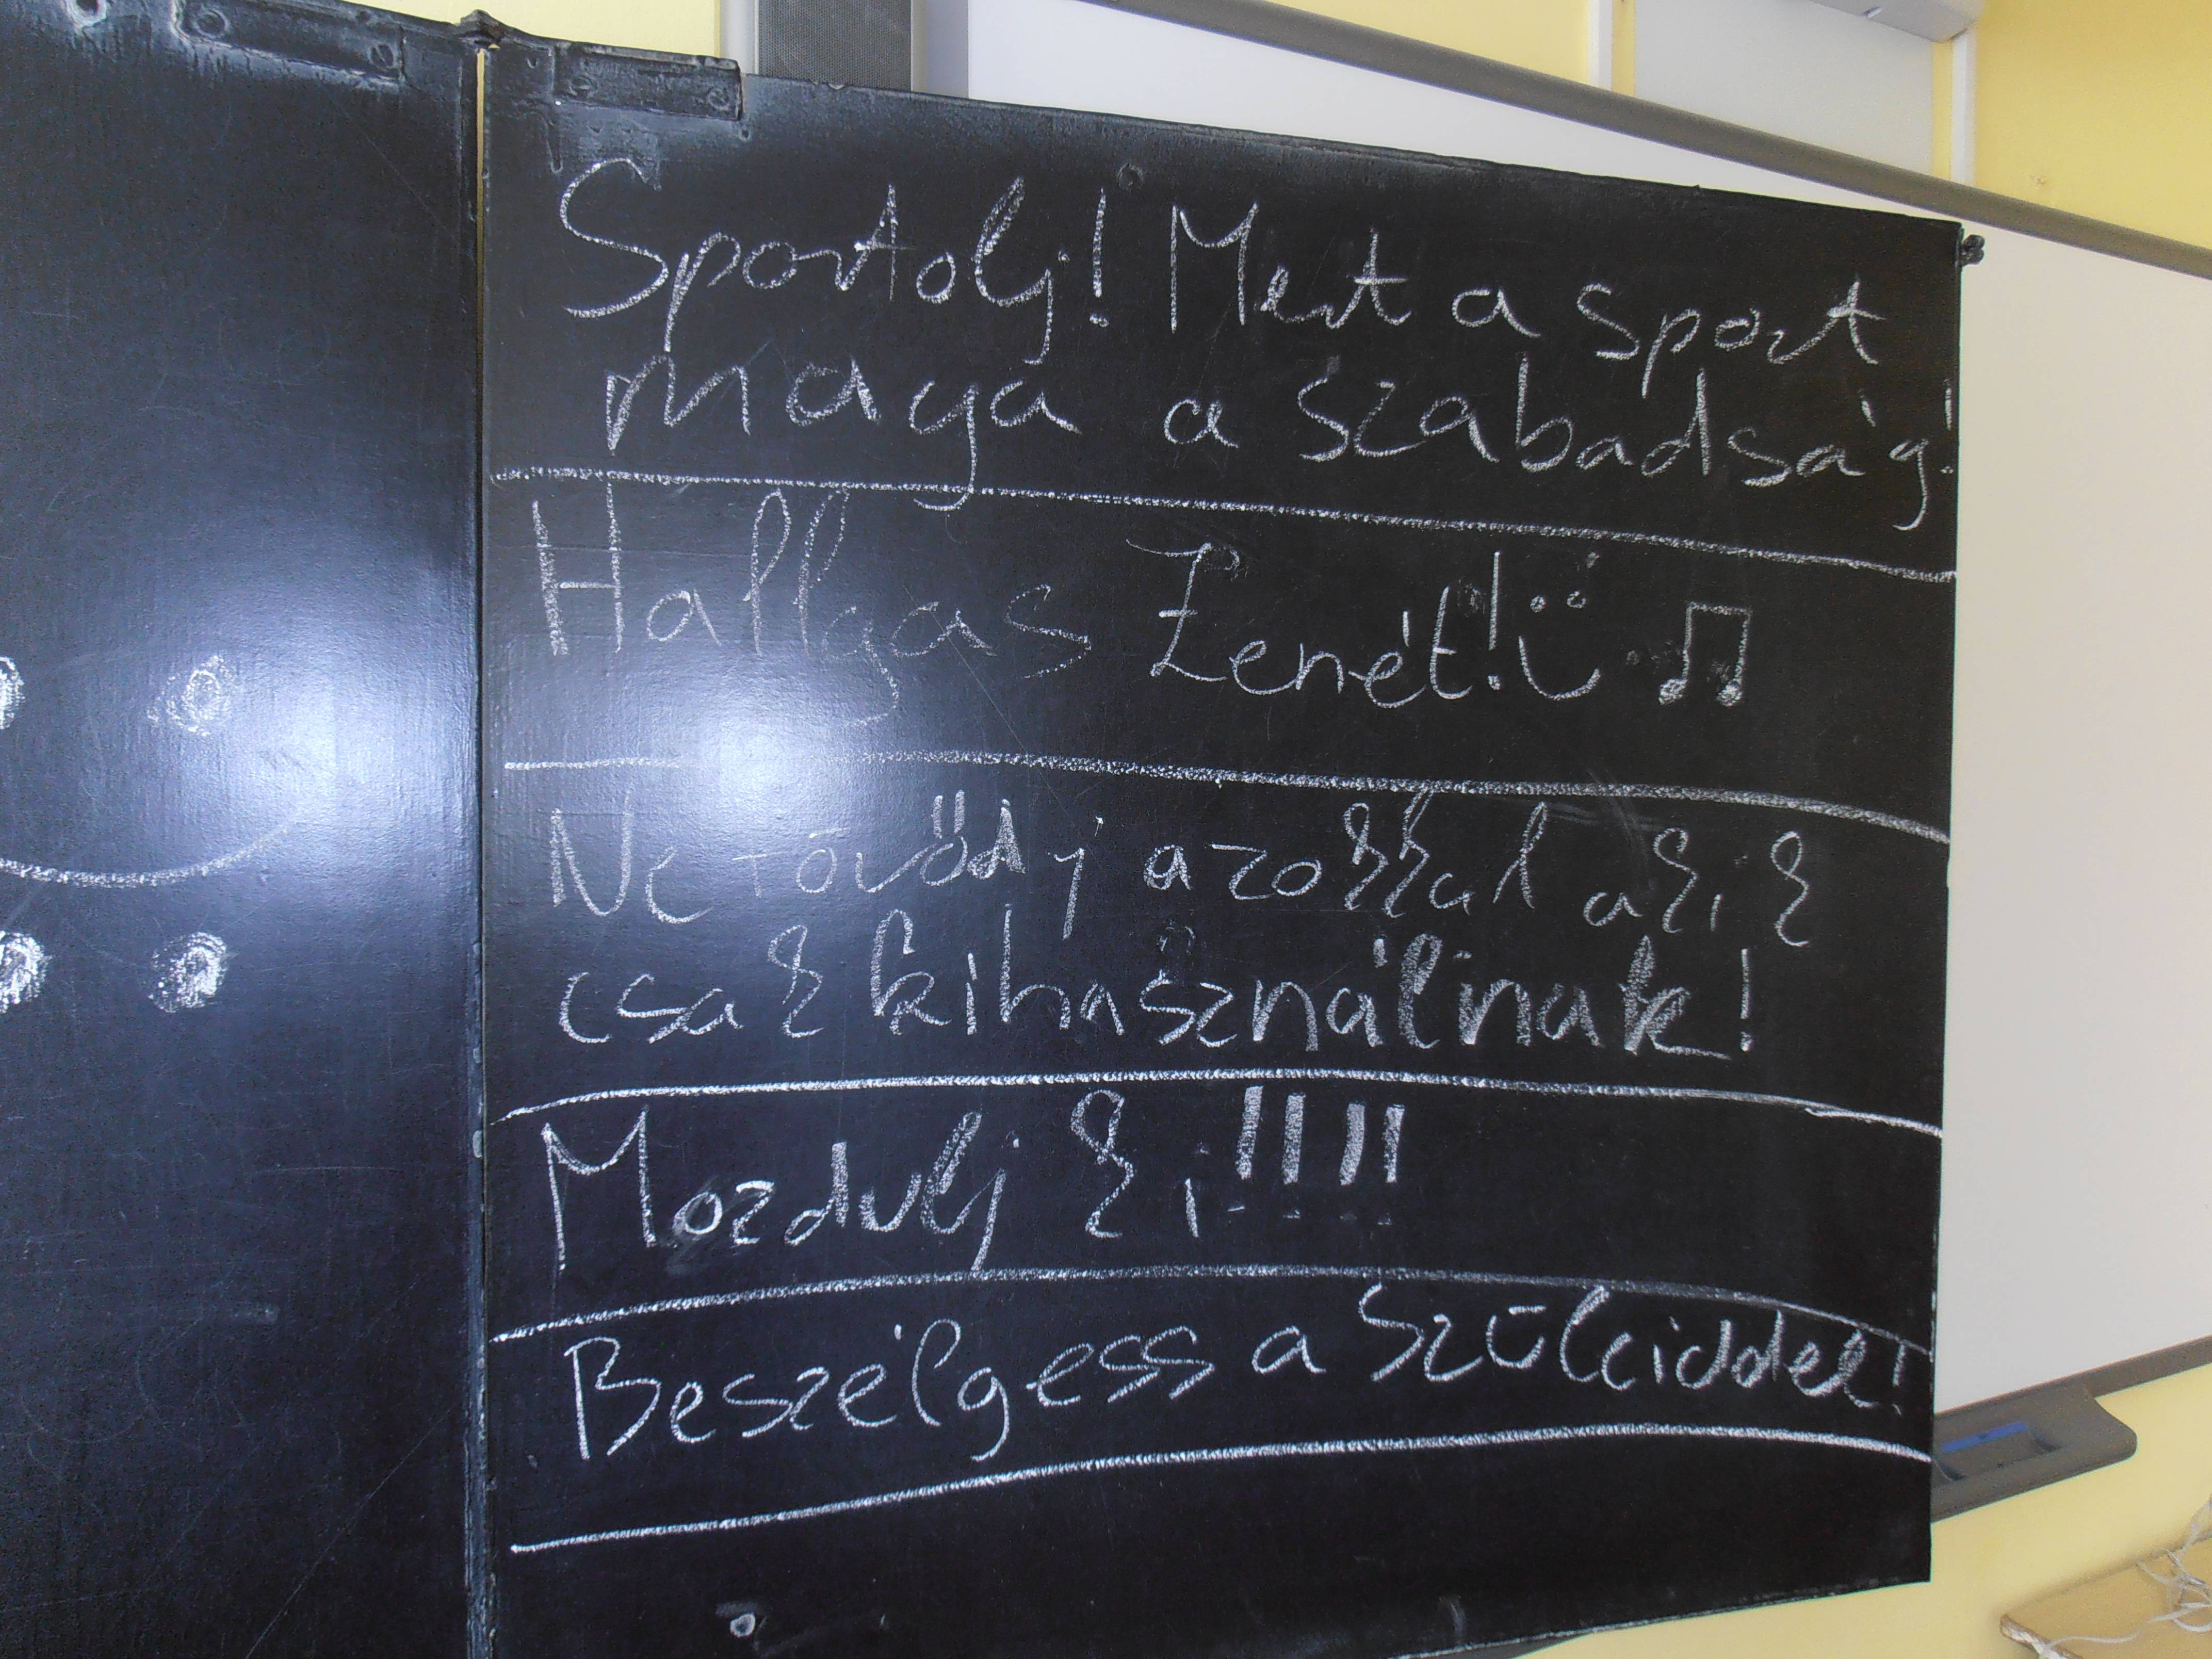 Sportolj! Mert a sport
maga a szabadság!
Hallgas Zenét!
Ne törődj azokkal akik
csak kihasználnak!
Mozdulj ki!!!!
Beszélgess a szüleiddel!